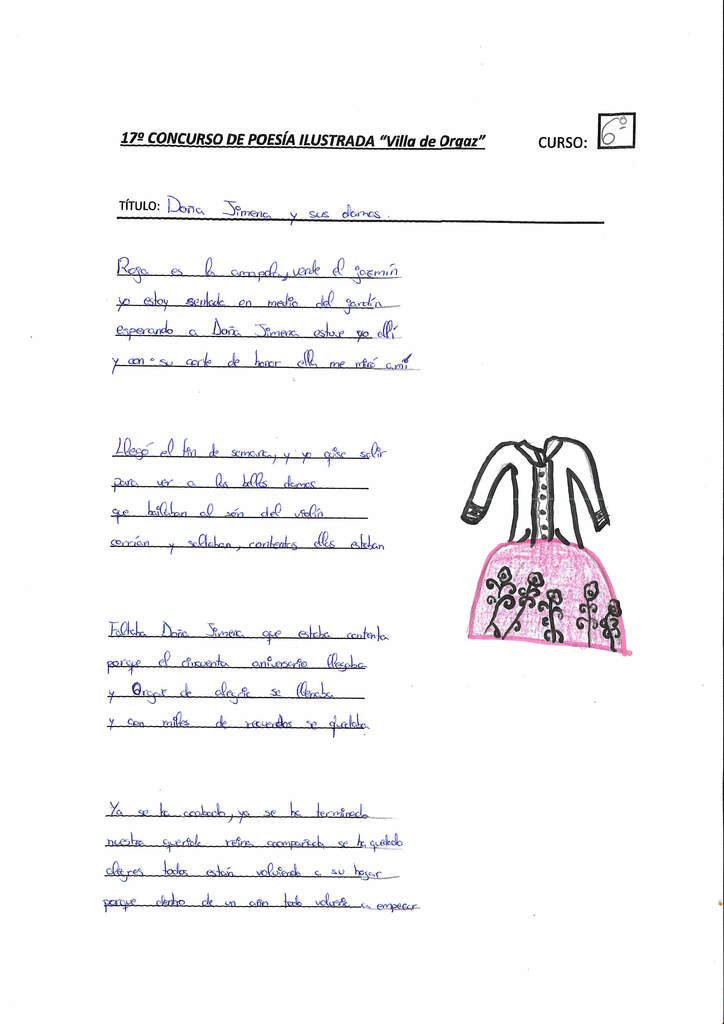 17º CONCURSO DE POESÍA ILUSTRADA "Villa de Orgaz"
CURSO: 6º
TÍTULO: Doña Jimena y sus damas.
Roja es la amapola, verde el jazmín
yo estoy sentada en medio del jardín
esperando a Doña Jimena estuve yo allí
y con su corte de honor ella me miró a mí
Llegó el fin de semana, y yo quise salir
para ver a las bellas damas
que bailaban al són del violín
corrían y saltaban, contentas ellas estaban
Faltaba Doña Jimena que estaba contenta
porque el cincuenta aniversario llegaba
y Orgaz de alegria se llenaba
y con miles de recuerdos se quedaba
Ya se ha acabado, ya se ha terminado
nuestra querida reina acompañada se ha quedado
alegres todos están volviendo a su hogar
porque dentro de un año todo volverá a empezar